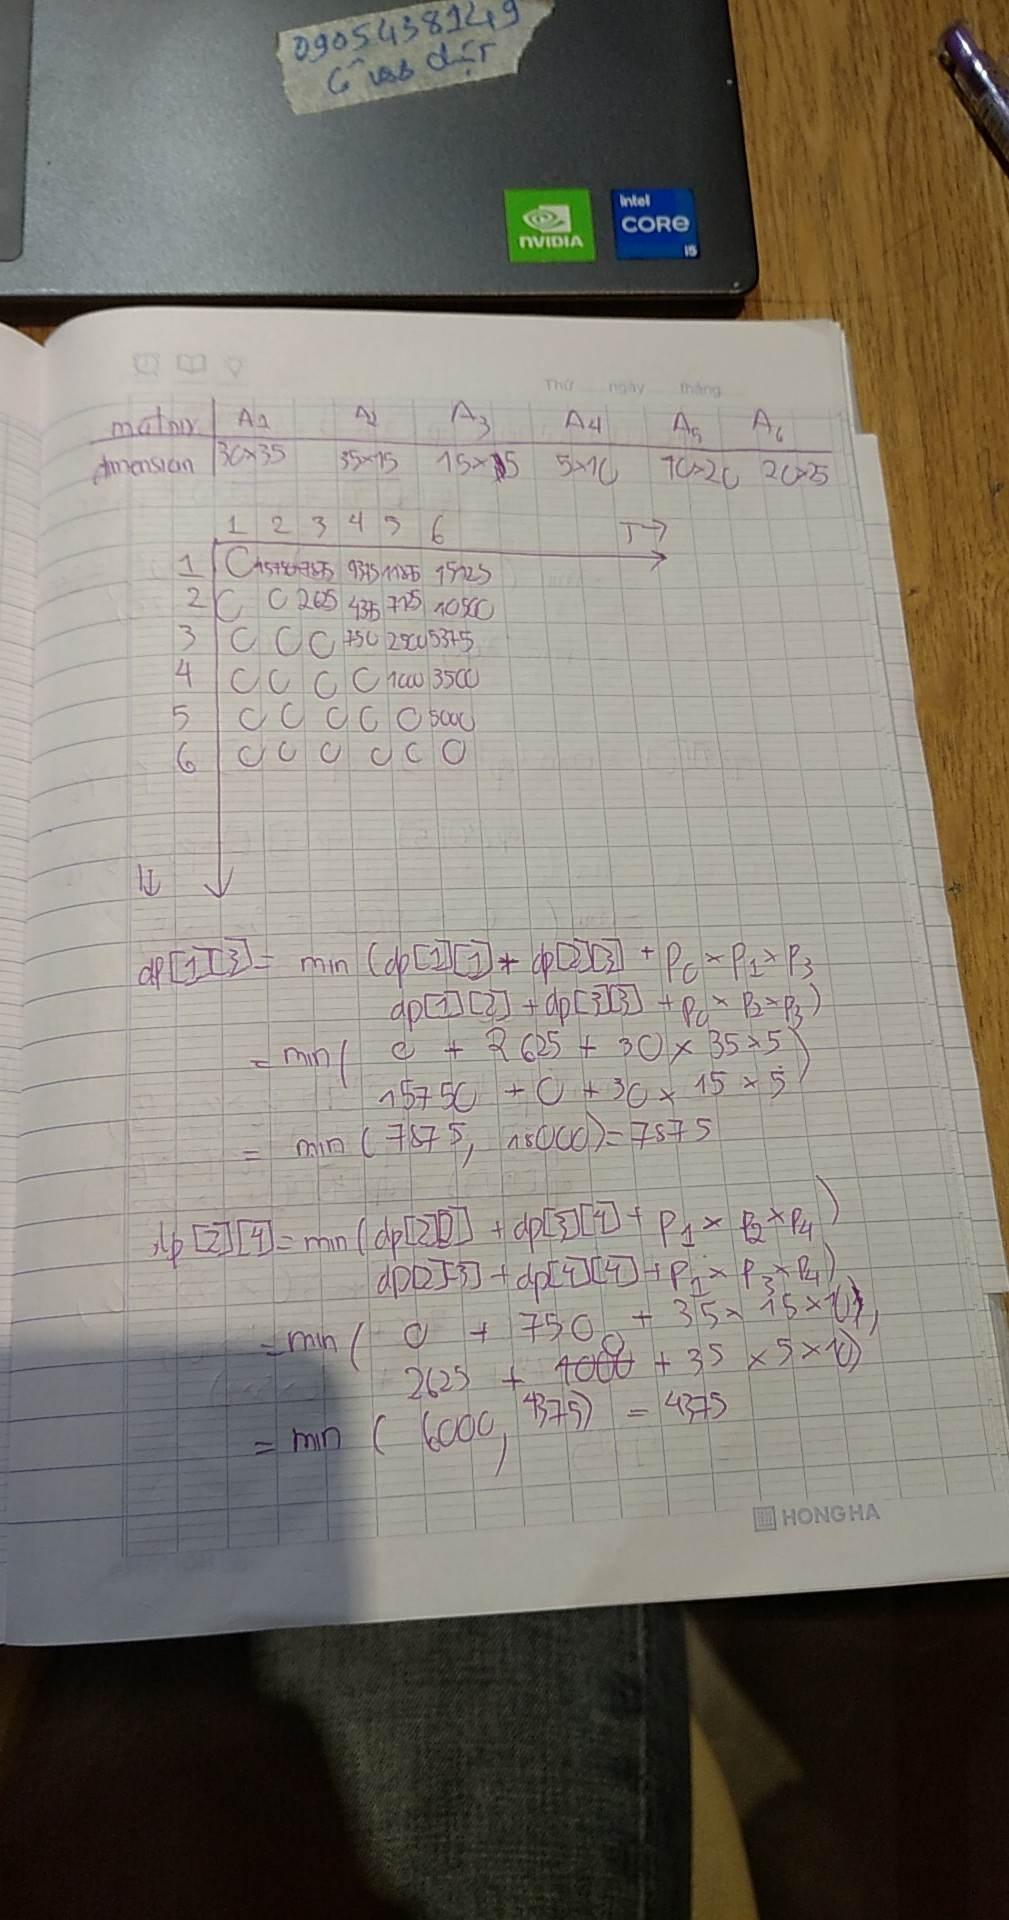 0905438149
NVIDIA
intel
CORE
i5
Thứ ngày tháng
matrix A1 A2 A3 A4 A5 A6
dimension 30×35 35×15 15×5 5×10 10×20 20×25
1 2 3 4 5 6 J→
1 0 15750 7875 9375 11875 15125
2 0 0 2625 4375 7125 10500
3 0 0 0 750 2500 5375
4 0 0 0 0 1000 3500
5 0 0 0 0 0 5000
6 0 0 0 0 0 0
dp[1][3] = min (dp[1][1] + dp[2][3] + P0 × P1 × P3
dp[1][2] + dp[3][3] + P0 × P2 × P3)
= min ( 0 + 2625 + 30 × 35 × 5
15750 + 0 + 30 × 15 × 5 )
= min ( 7875, 18000) = 7875
dp[2][4] = min (dp[2][2] + dp[3][4] + P1 × P2 × P4
dp[2][3] + dp[4][4] + P1 × P3 × P4)
= min ( 0 + 750 + 35 × 15 × 10),
2625 + 0 + 35 × 5 × 10)
= min ( 6000, 4375) = 4375
HONG HA